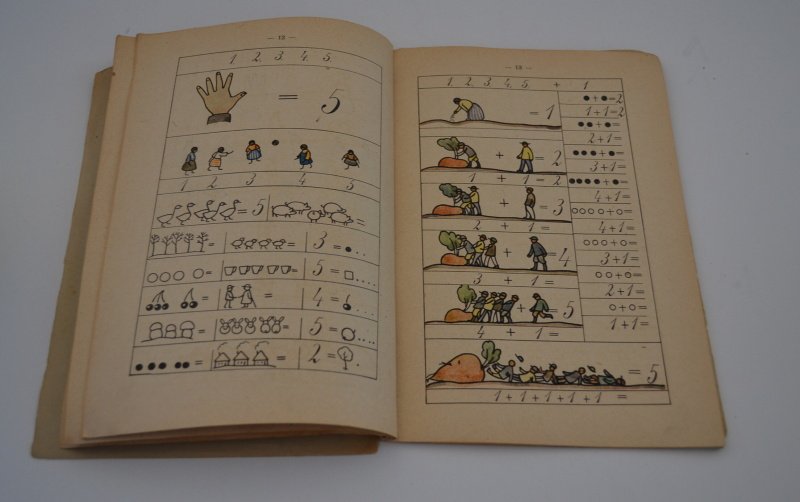 — 12 —
1 2. 3. 4. 5.
= 5
1 2 3 4 5
= 5 =
= = 3 =
= = 5 =
= = 4 =
= = 5 =
= = 2 =
— 13 —
1. 2. 3. 4. 5. + 1
= 1
+ = 2
1 + 1 = 2
+ = 3
2 + 1 =
+ = 4
3 + 1 =
+ = 5
4 + 1 =
= 5
1 + 1 + 1 + 1 + 1 =
+ = 2
1+1=2
+ =
2+1=
+ =
3+1=
+ =
4+1=
+ =
4+1=
+ =
3+1=
+ =
2+1=
+ =
1+1=